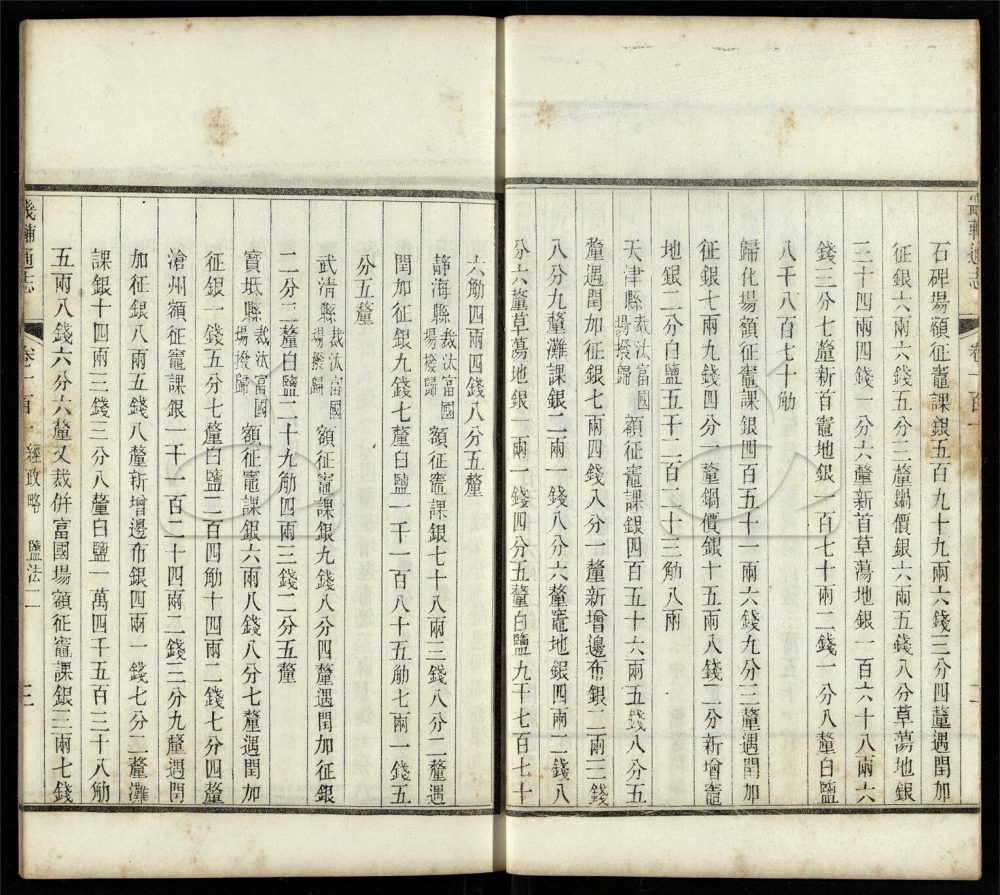 石碑場額征竈課銀五百九十九兩六錢三分四釐遇閏加
征銀六兩六錢五分二釐鍋價銀六兩五錢八分草蕩地銀
三十四兩四錢一分六釐新首草蕩地銀一百六十八兩六
錢三分七釐新首竈地銀一百七十兩二錢一分八釐白鹽
八千八百七十觔
歸化場額征竈課銀四百五十一兩六錢九分三釐遇閏加
征銀七兩九錢四分一釐鍋價銀十五兩八錢二分新增竈
地銀二分白鹽五千二百二十三觔八兩
天津縣裁汰富國場撥歸額征竈課銀四百五十六兩五錢八分五
釐遇閏加征銀七兩四錢八分一釐新增邊布銀二兩三錢
八分九釐灘課銀二兩一錢八分六釐竈地銀四兩二錢八
分六釐草蕩地銀一兩一錢四分五釐白鹽九千七百七十
六觔四兩四錢八分五釐
靜海縣裁汰富國場撥歸額征竈課銀七十八兩三錢八分二釐遇
閏加征銀九錢七釐白鹽一千一百八十五觔七兩一錢五
分五釐
武清縣裁汰富國場撥歸額征竈課銀九錢八分四釐遇閏加征銀
二分三釐白鹽二十九觔四兩三錢二分五釐
寶坻縣裁汰富國場撥歸額征竈課銀六兩八錢八分七釐遇閏加
征銀一錢五分七釐白鹽二百四觔十四兩二錢七分四釐
滄州額征竈課銀一千一百二十四兩二錢三分九釐遇閏
加征銀八兩五錢八釐新增邊布銀四兩一錢七分二釐灘
課銀十四兩三錢三分八釐白鹽一萬四千五百三十八觔
五兩八錢六分六釐又裁併富國場額征竈課銀三兩七錢
畿輔通志 卷一百 經政略 鹽法二 三